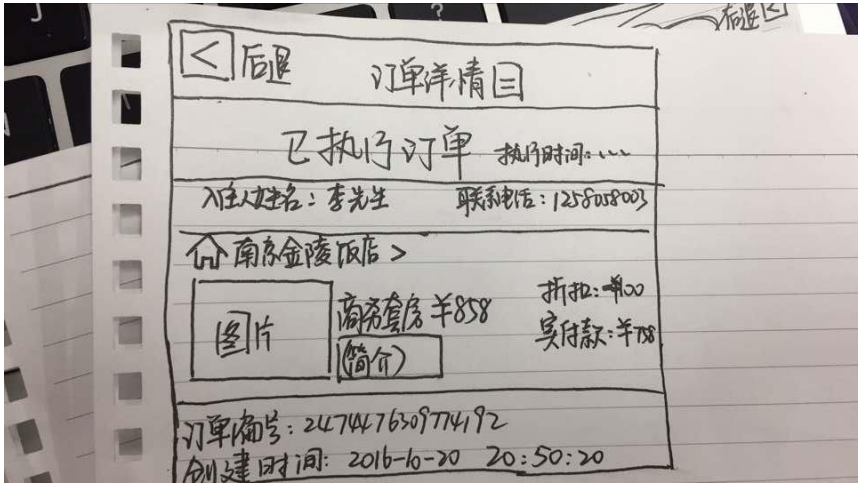 后退
< 后退 订单详情
已执行订单 执行时间:...
入住人姓名:李先生 联系电话:1258058003
南京金陵饭店 >
折扣:¥100
商务套房 ¥858
图片
实付款:¥758
(简介)
订单编号:2474476309774192
创建时间: 2016-10-20 20:50:20